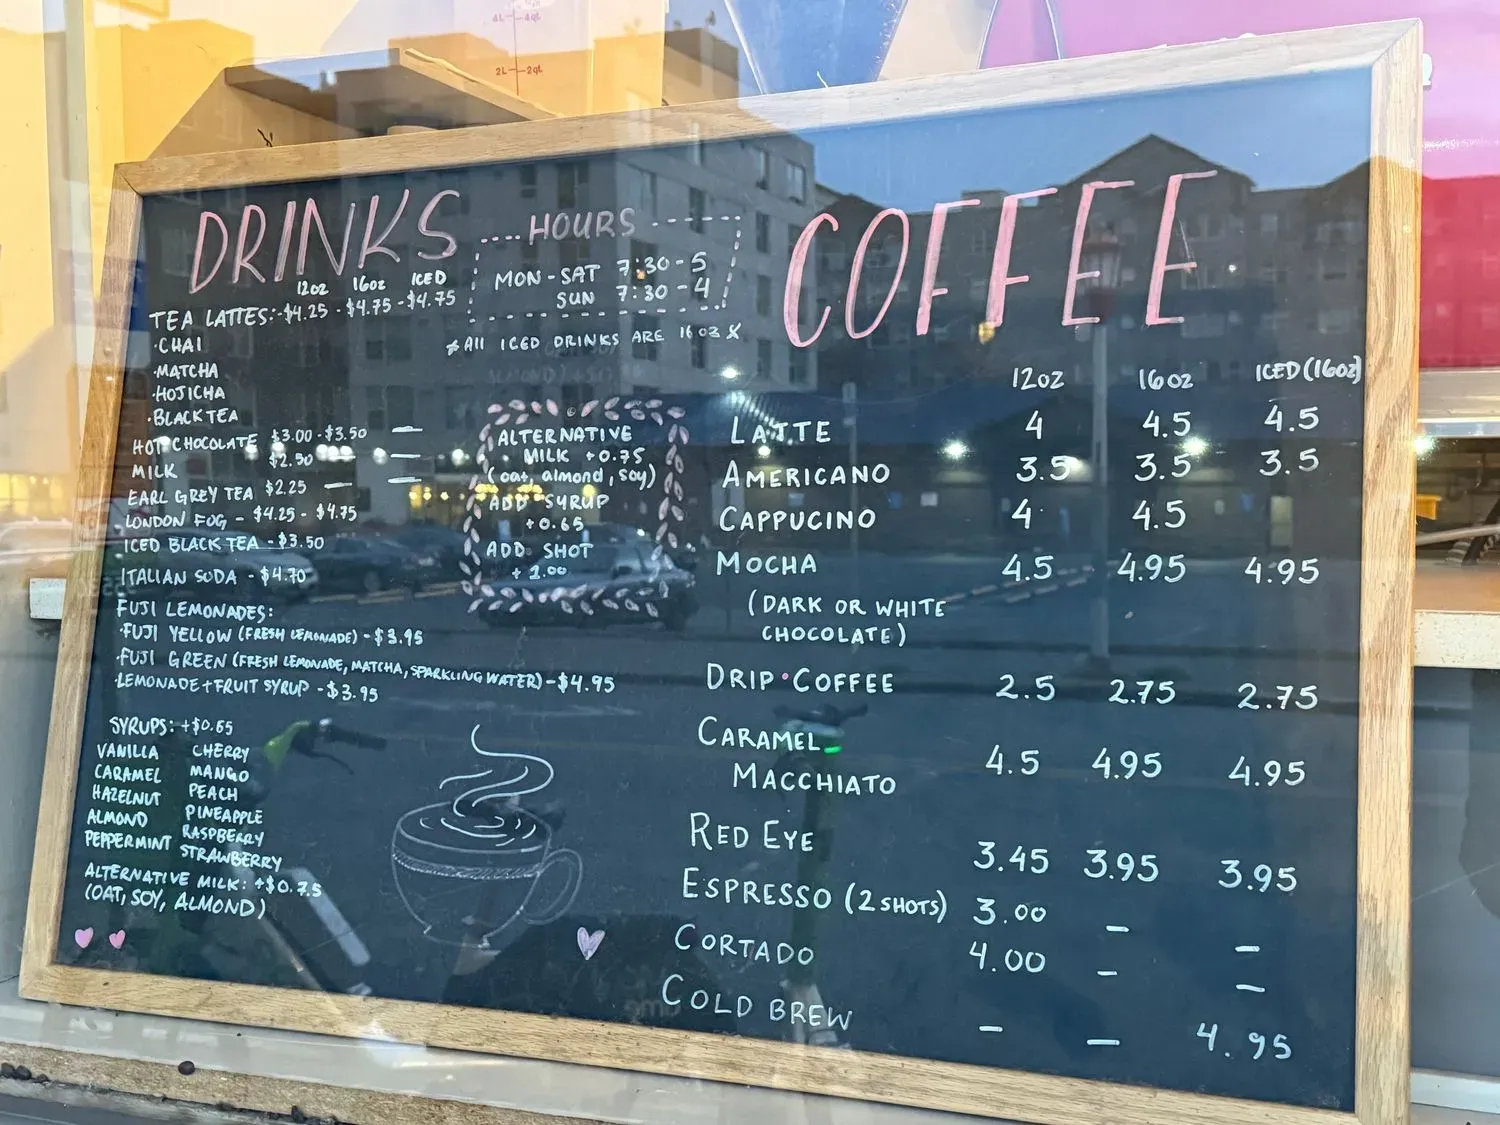 4L 4qt
2L 2qt
DRINKS
12oz 16oz ICED
TEA LATTES: -$4.25 - $4.75 - $4.75
·CHAI
·MATCHA
·HOJICHA
·BLACK TEA
HOT CHOCOLATE $3.00 - $3.50 —
MILK $2.50 — —
EARL GREY TEA $2.25 — —
LONDON FOG - $4.25 - $4.75
ICED BLACK TEA - $3.50
ITALIAN SODA - $4.70
FUJI LEMONADES:
·FUJI YELLOW (FRESH LEMONADE) - $3.95
·FUJI GREEN (FRESH LEMONADE, MATCHA, SPARKLING WATER) - $4.95
·LEMONADE + FRUIT SYRUP - $3.95
SYRUPS: +$0.65
VANILLA CHERRY
CARAMEL MANGO
HAZELNUT PEACH
ALMOND PINEAPPLE
PEPPERMINT RASPBERRY
STRAWBERRY
ALTERNATIVE MILK: +$0.75
(OAT, SOY, ALMOND)
HOURS
MON - SAT 7:30 - 5
SUN 7:30 - 4
All ICED DRINKS ARE 16oz
ALTERNATIVE
MILK +0.75
(oat, almond, soy)
ADD SYRUP
+0.65
ADD SHOT
+ 1.00
COFFEE
12oz 16oz ICED (16oz)
LATTE 4 4.5 4.5
AMERICANO 3.5 3.5 3.5
CAPPUCINO 4 4.5
MOCHA 4.5 4.95 4.95
(DARK OR WHITE
CHOCOLATE)
DRIP COFFEE 2.5 2.75 2.75
CARAMEL
MACCHIATO 4.5 4.95 4.95
RED EYE 3.45 3.95 3.95
ESPRESSO (2 SHOTS) 3.00 — —
CORTADO 4.00 — —
COLD BREW — — 4.95